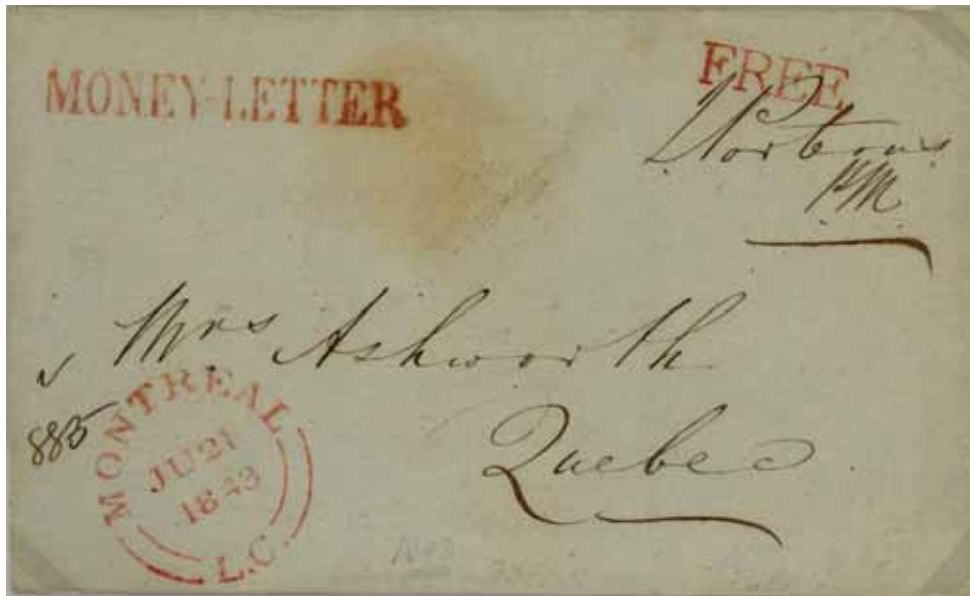 MONEY-LETTER
FREE
PM
Mrs Ashworth
Quebec
885
MONTREAL
JU 21
1843
L.C.